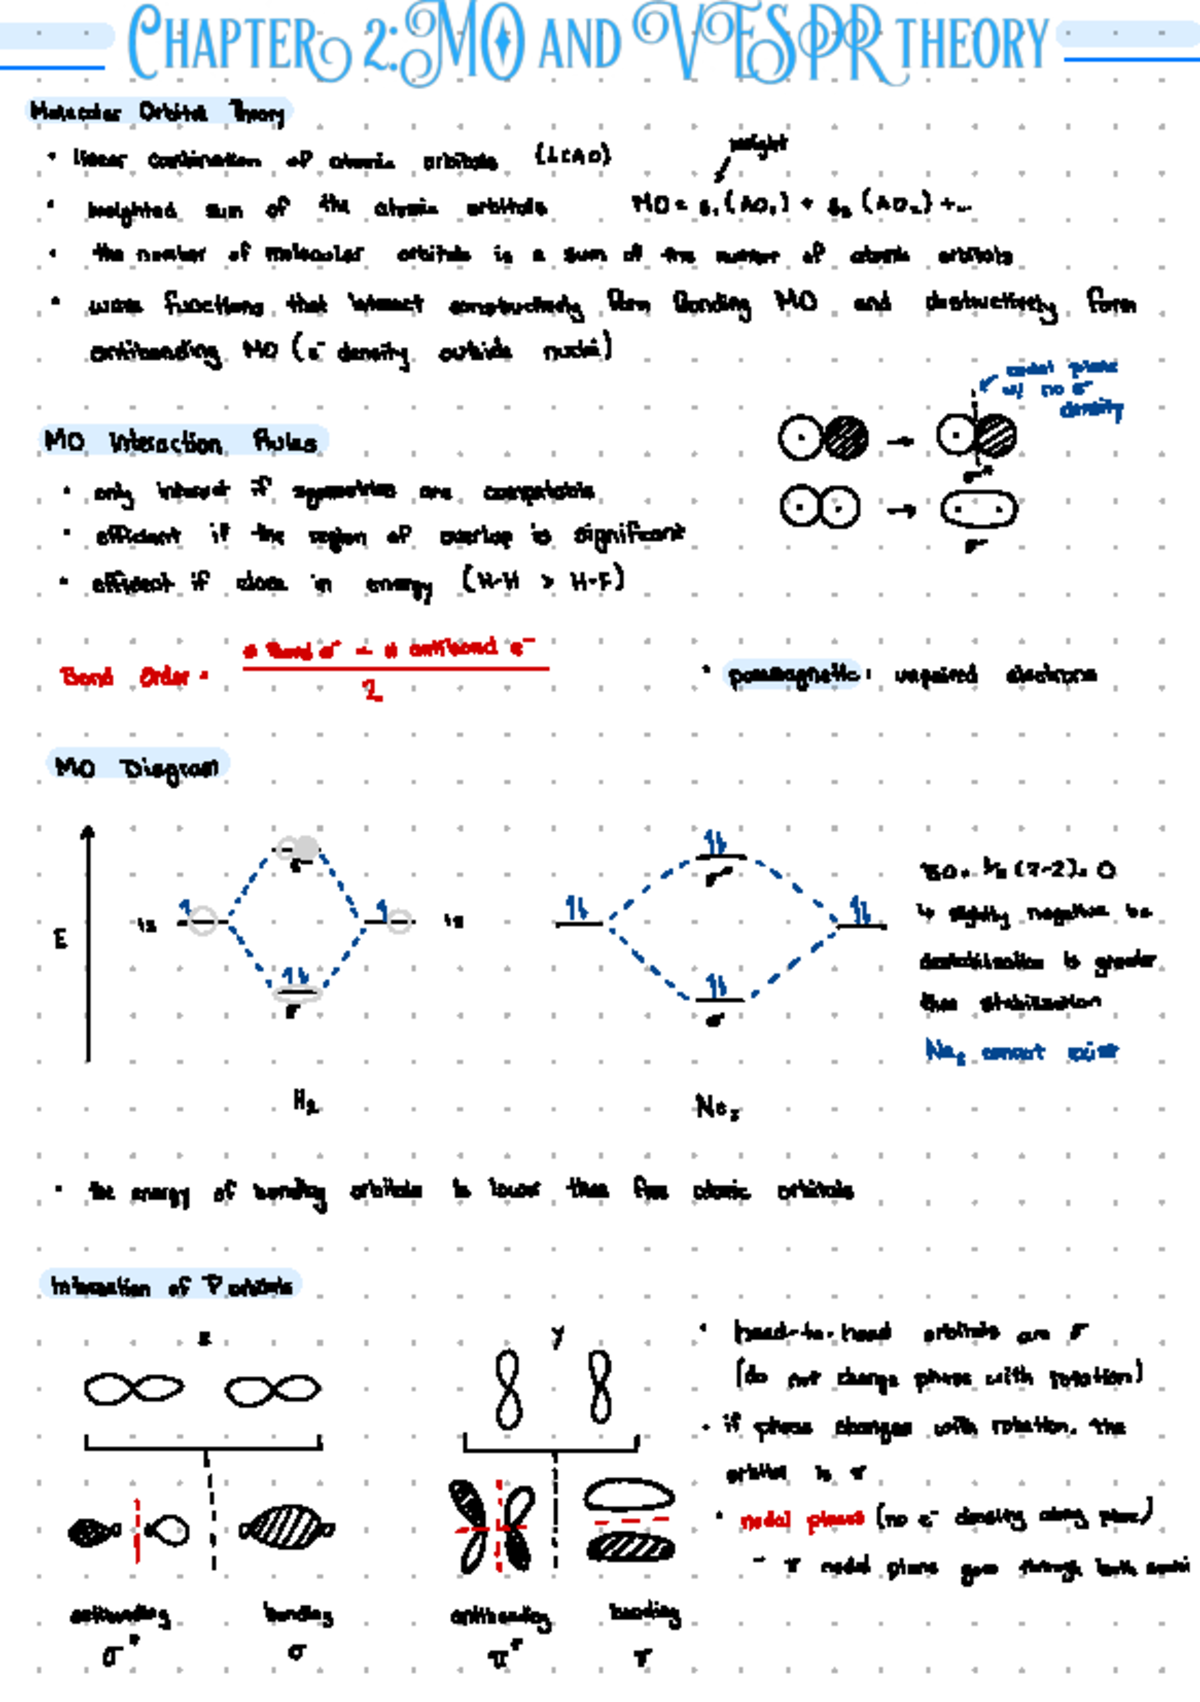 CHAPTER 2: MO AND VESPR THEORY
Molecular Orbital Theory
• linear combination of atomic orbitals (LCAO)
weight
• weighted sum of the atomic orbitals MO = (AO₁) + (AO₂) + ...
• the number of molecular orbitals is a sum of the number of atomic orbitals
• wave functions that interact constructively form Bonding MO and destructively form
antibonding MO (e⁻ density outside nuclei)
nodal plane
w/ no e⁻
density
MO Interaction Rules
• only interact if symmetries are compatable
σ*
• efficient if the region of overlap is significant
σ
• efficient if close in energy (H-H > H-F)
Bond Order = # Bond e⁻ - # antibond e⁻
2
• paramagnetic: unpaired electrons
MO Diagram
E
1s
σ*
1s
σ
H₂
σ*
σ
BO = ½ (2-2) = 0
↳ slightly negative bc
destabilization is greater
than stabilization
cannot exist
• the energy of bonding orbitals is lower than free atomic orbitals
Interaction of P orbitals
y
• head-to-head orbitals are σ
(do not change phase with rotation)
• if phase changes with rotation, the
orbital is π
• nodal planes (no e⁻ density along plane)
- π nodal plane goes through both
antibonding bonding antibonding bonding
σ* σ π* π